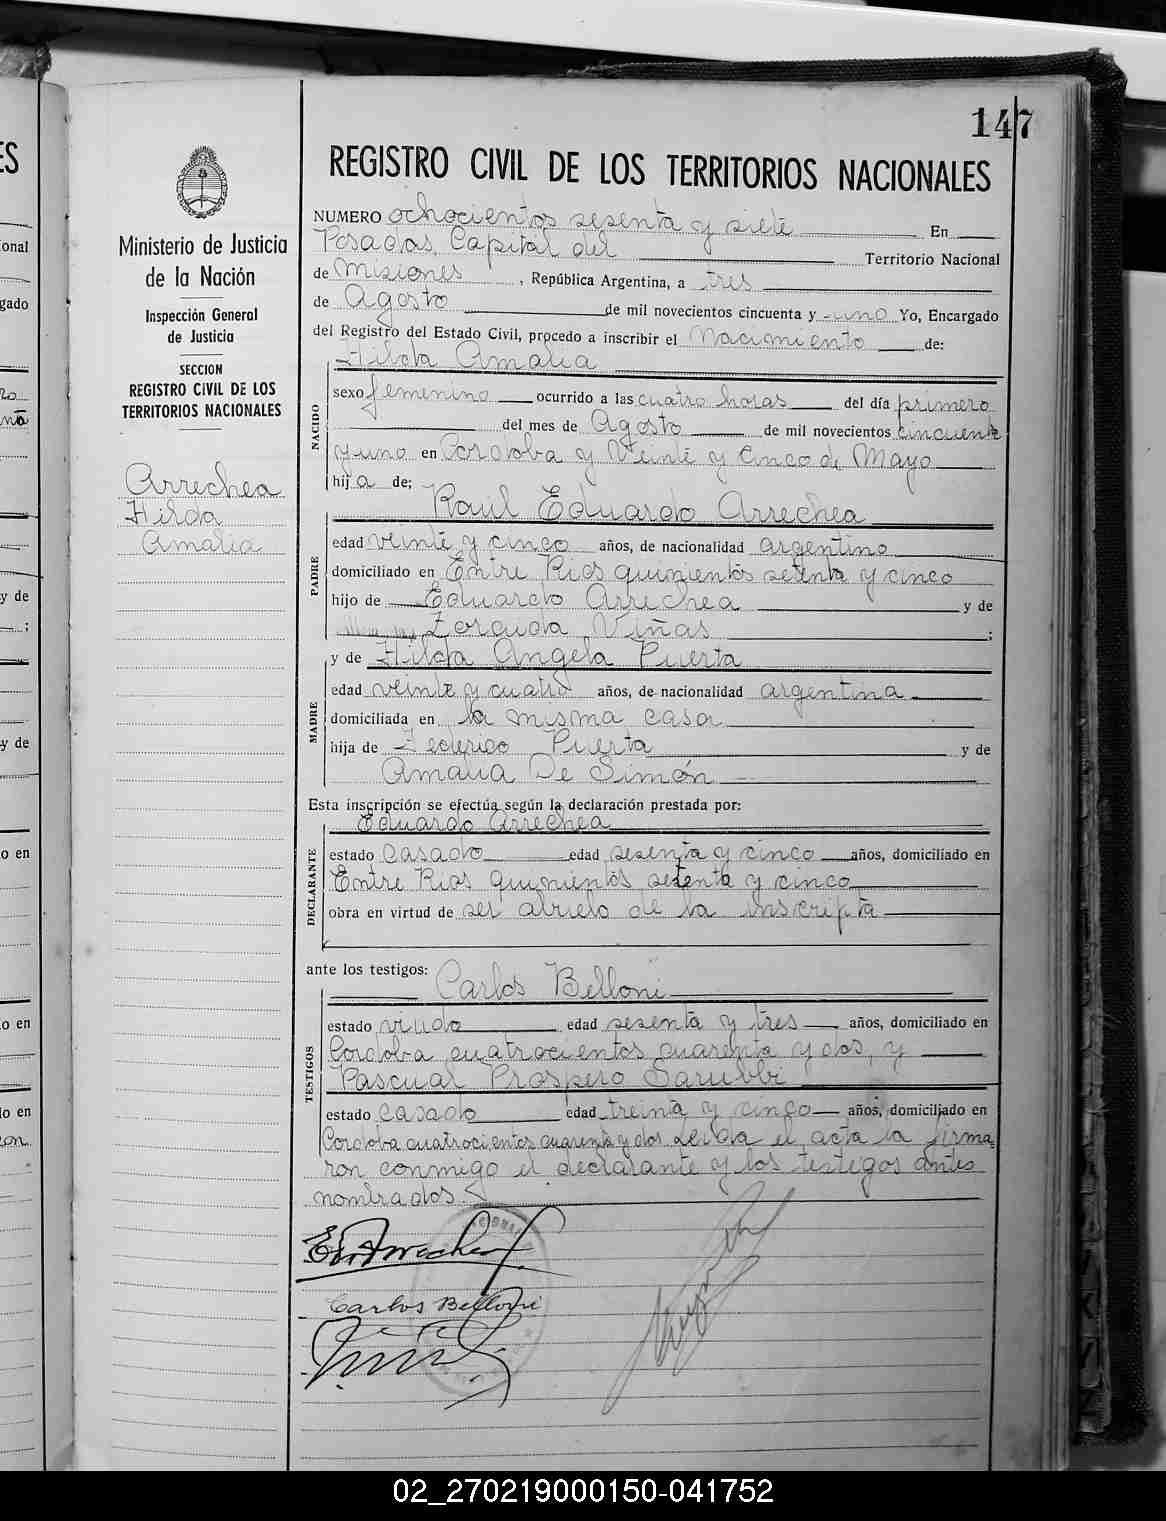 147
REGISTRO CIVIL DE LOS TERRITORIOS NACIONALES
Ministerio de Justicia
de la Nación
Inspección General
de Justicia
SECCION
REGISTRO CIVIL DE LOS
TERRITORIOS NACIONALES
Arrechea
Hilda
Amalia
NUMERO ochocientos sesenta y siete En
Posadas, Capital del Territorio Nacional
de Misiones, República Argentina, a tres
de Agosto de mil novecientos cincuenta y uno Yo, Encargado
del Registro del Estado Civil, procedo a inscribir el Nacimiento de:
Hilda Amalia
NACIDO
sexo femenino ocurrido a las cuatro horas del día primero
del mes de Agosto de mil novecientos cincuenta
y uno en Cordoba y Veinte y Cinco de Mayo
hija de;
Raúl Eduardo Arrechea
PADRE
edad veinte y cinco años, de nacionalidad argentino
domiciliado en Entre Rios quinientos setenta y cinco
hijo de Eduardo Arrechea y de
Zoraida Viñas ;
y de Hilda Angela Puerta
MADRE
edad veinte y cuatro años, de nacionalidad argentina
domiciliada en la misma casa
hija de Federico Puerta y de
Amalia De Simón
Esta inscripción se efectúa según la declaración prestada por:
Eduardo Arrechea
DECLARANTE
estado casado edad sesenta y cinco años, domiciliado en
Entre Rios quinientos setenta y cinco
obra en virtud de ser abuelo de la inscripta
ante los testigos:
Carlos Belloni
TESTIGOS
estado viudo edad sesenta y tres años, domiciliado en
Cordoba cuatrocientos cuarenta y dos, y
Pascual Prospero Sarubbi
estado casado edad treinta y cinco años, domiciliado en
Cordoba cuatrocientos cuarenta y dos. Leida el acta la firma-
ron conmigo el declarante y los testigos antes
nombrados.
Ed. Arrechea
Carlos Belloni
02_270219000150-041752